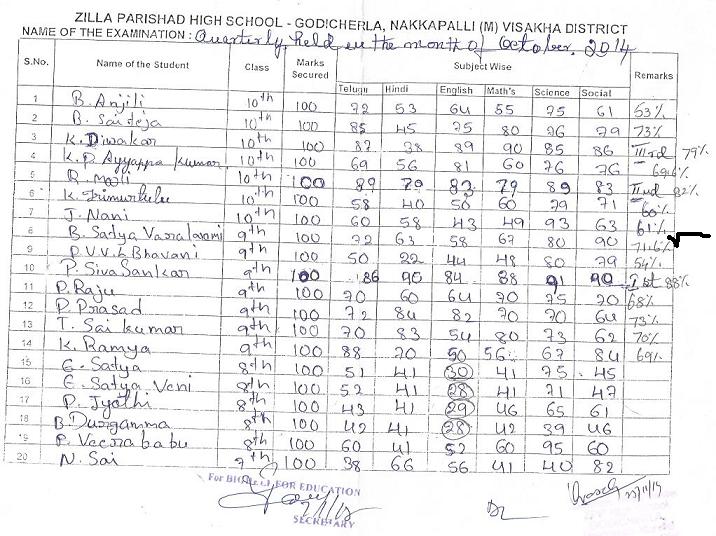 ZILLA PARISHAD HIGH SCHOOL - GODICHERLA, NAKKAPALLI (M) VISAKHA DISTRICT
NAME OF THE EXAMINATION : Quarterly, held in the month of October, 2014
S.No. Name of the Student Class Marks Secured Subject Wise Remarks
Telugu Hindi English Math's Science Social
1 B. Anjili 10th 100 72 53 64 55 75 61 53%
2 B. Sai teja 10th 100 85 45 75 80 76 79 73%
3 K. Diwakar 10th 100 87 38 89 90 85 86 IIIrd 79%
4 K. P. Ayyappa kumar 10th 100 69 56 81 60 76 76 69.6%
5 R. mooli 10th 100 89 79 83 79 89 83 IInd 82%
6 K. Trimurthulu 10th 100 58 40 50 60 79 71 60%
7 J. Nani 10th 100 60 58 43 49 93 63 61%
8 B. Satya Varalaxmi 9th 100 72 63 58 67 80 90 71.6%
9 P.V.V.L Bhavani 9th 100 50 22 44 48 80 79 54%
10 P. Siva Sankar 9th 100 86 90 84 88 91 90 Ist 88%
11 P. Raju 9th 100 70 60 64 70 75 70 68%
12 P. Prasad 9th 100 72 84 82 70 70 64 73%
13 T. Sai kumar 9th 100 70 83 54 80 73 62 70%
14 K. Ramya 9th 100 88 70 50 56 67 84 69%
15 G. Satya 8th 100 51 41 30 41 75 45
16 G. Satya Veni 8th 100 52 41 28 41 71 47
17 P. Jyothi 8th 100 43 41 29 46 65 61
18 B. Durgamma 8th 100 42 41 28 42 39 46
19 P. Veera babu 8th 100 60 41 52 60 95 60
20 N. Sai 7th 100 38 66 56 41 40 82
For FOR EDUCATION
SECRETARY